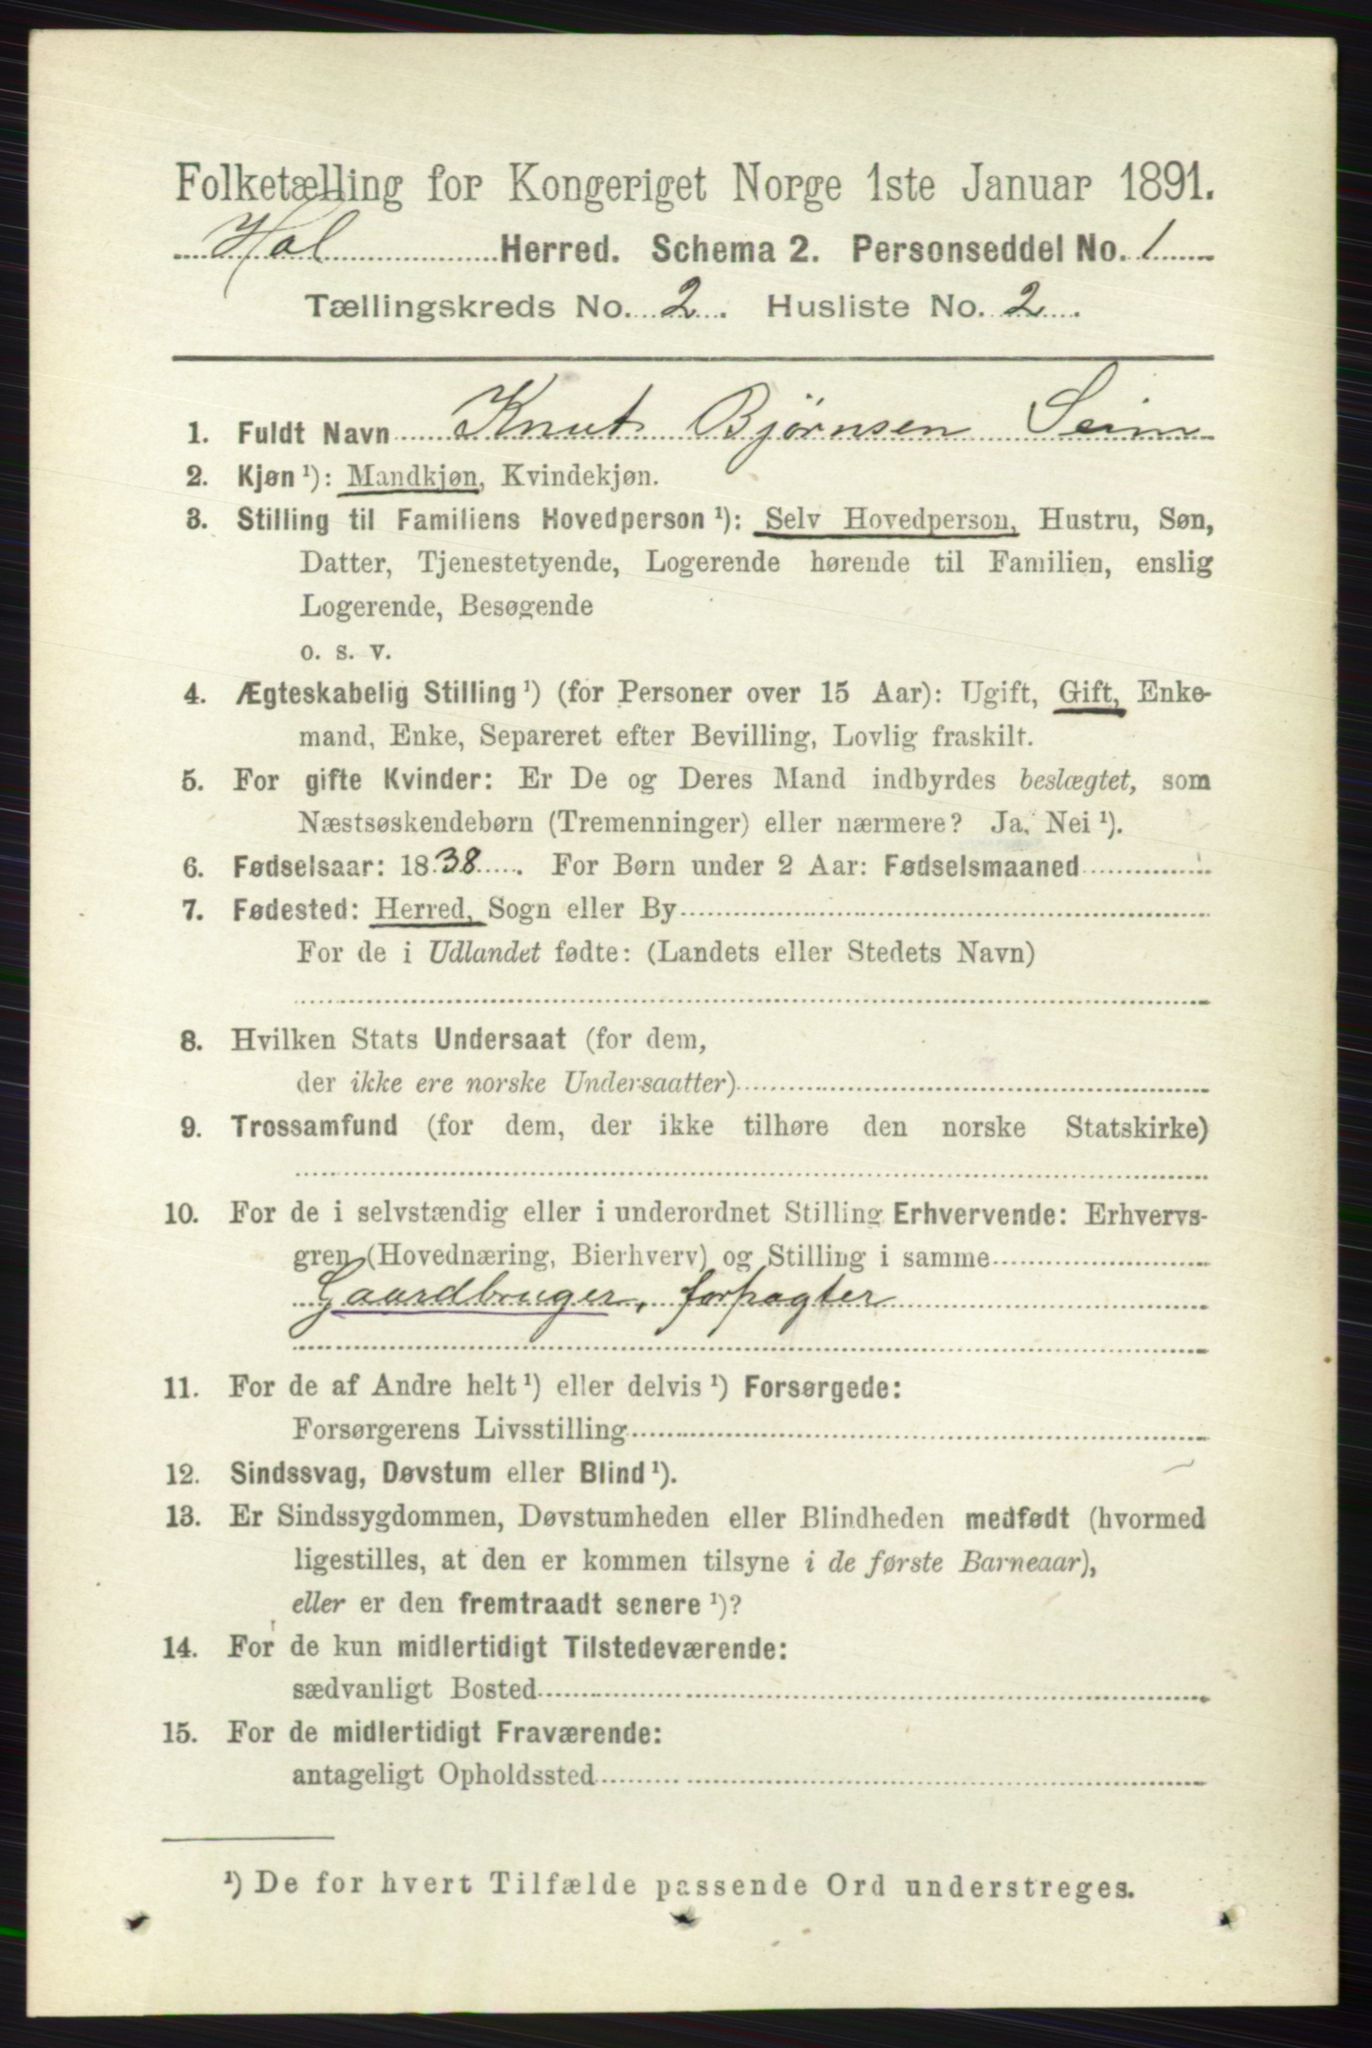 Folketælling for Kongeriget Norge 1ste Januar 1891.
Hol Herred. Schema 2. Personseddel No. 1
Tællingskreds No. 2. Husliste No. 2.
1. Fuldt Navn Knut Bjørnsen Seim
2. Kjøn¹): Mandkjøn, Kvindekjøn.
3. Stilling til Familiens Hovedperson¹): Selv Hovedperson, Hustru, Søn,
Datter, Tjenestetyende, Logerende hørende til Familien, enslig
Logerende, Besøgende
o. s. v.
4. Ægteskabelig Stilling¹) (for Personer over 15 Aar): Ugift, Gift, Enke-
mand, Enke, Separeret efter Bevilling, Lovlig fraskilt.
5. For gifte Kvinder: Er De og Deres Mand indbyrdes beslægtet, som
Næstsøskendebørn (Tremenninger) eller nærmere? Ja, Nei¹).
6. Fødselsaar: 1838. For Børn under 2 Aar: Fødselsmaaned
7. Fødested: Herred, Sogn eller By
For de i Udlandet fødte: (Landets eller Stedets Navn)
8. Hvilken Stats Undersaat (for dem,
der ikke ere norske Undersaatter)
9. Trossamfund (for dem, der ikke tilhøre den norske Statskirke)
10. For de i selvstændig eller i underordnet Stilling Erhvervende: Erhvervs-
gren (Hovednæring, Bierhverv) og Stilling i samme
Gaardbruger, forpagter
11. For de af Andre helt¹) eller delvis¹) Forsørgede:
Forsørgerens Livsstilling
12. Sindssvag, Døvstum eller Blind¹).
13. Er Sindssygdommen, Døvstumheden eller Blindheden medfødt (hvormed
ligestilles, at den er kommen tilsyne i de første Barneaar),
eller er den fremtraadt senere¹)?
14. For de kun midlertidigt Tilstedeværende:
sædvanligt Bosted
15. For de midlertidigt Fraværende:
antageligt Opholdssted
¹) De for hvert Tilfælde passende Ord understreges.